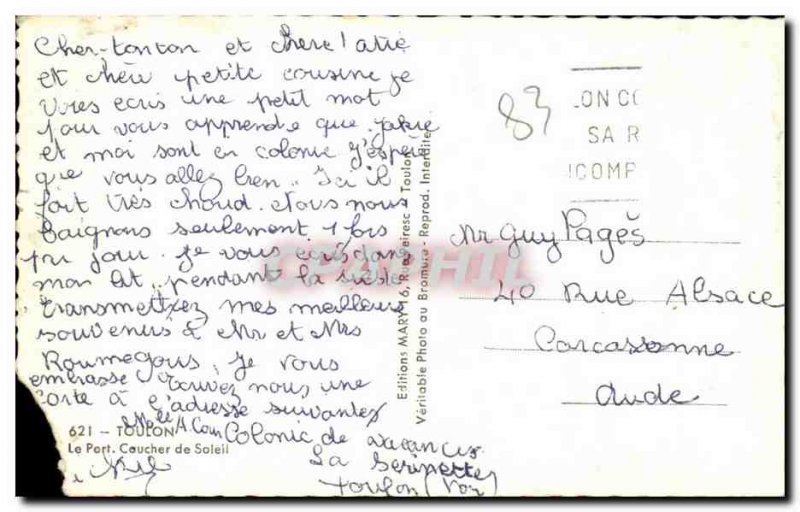 Cher tonton et chère tatie
et chère petite cousine je
vous ecris une petit mot
pour vous apprende que
et moi sont en colonie j'espère
que vous allez bien. Ici il
fait très chaud. Nous nous
baignons seulement 1 fois
par jour. Je vous ecris dans
mon lit, pendant la sieste
transmettez mes meilleurs
souvenirs à Mr et Mrs
Roumegous. Je vous
embrasse nous, une
carte à l'adresse suivantes
Colonie de vacances
La Serinette
Toulon (Var)
621 - TOULON
Le Port. Coucher de Soleil
Editions MAR 16, Rue Peiresc - Toulon
Véritable Photo au Bromure - Reprod. Interdite
83
LON CO
SA R
COMP
Mr Guy Pagès
40 Rue Alsace
Carcassonne
Aude